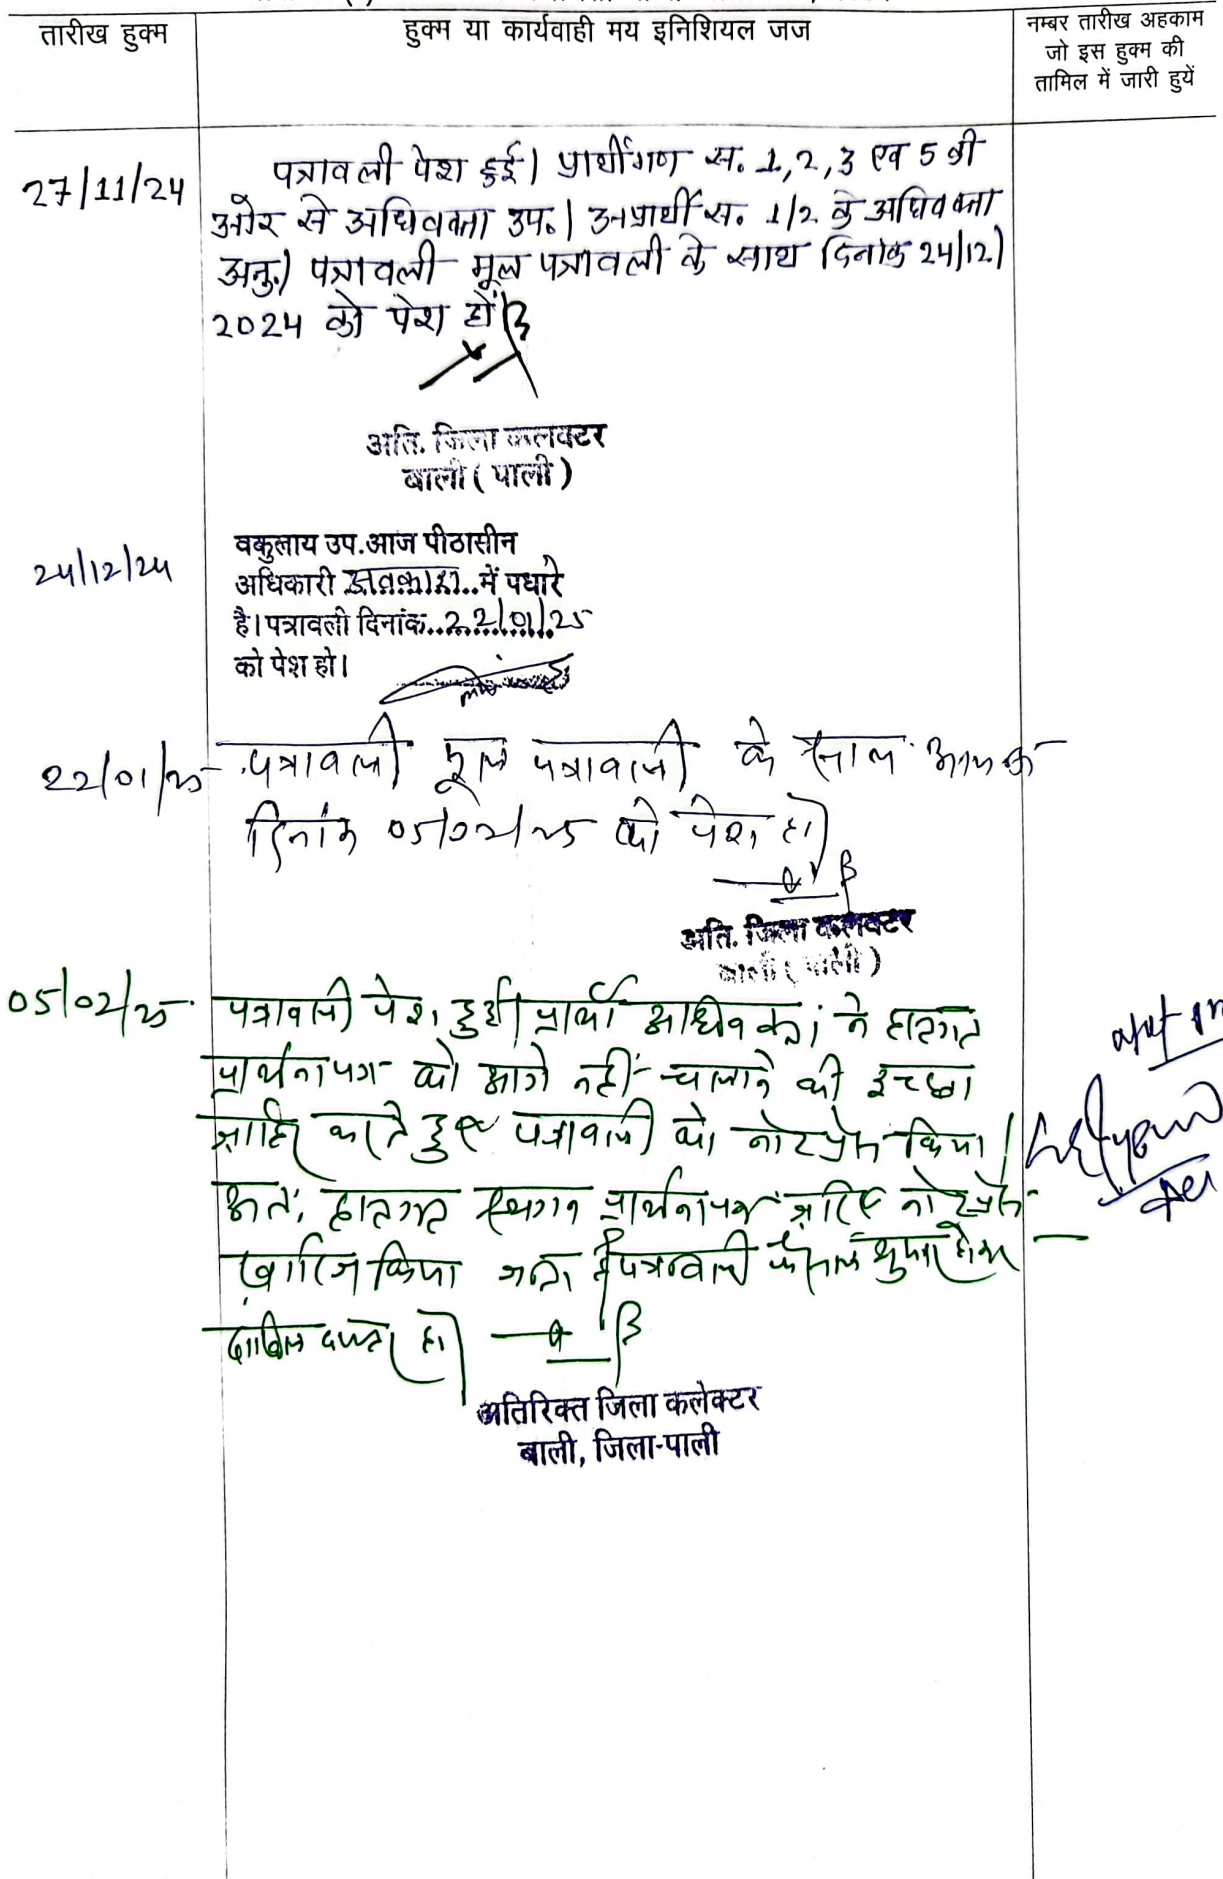 तारीख हुक्म
हुक्म या कार्यवाही मय इनिशियल जज
नम्बर तारीख अहकाम
जो इस हुक्म की
तामिल में जारी हुयें
27/11/24
पत्रावली पेश हुई। प्रार्थीगण स. 1, 2, 3 एव 5 की
ओर से अधिवक्ता उप.। अप्रार्थी स. 1/2 के अधिवक्ता
अनु.। पत्रावली मूल पत्रावली के साथ दिनांक 24/12/
2024 को पेश हो।
अति. जिला कलक्टर
बाली ( पाली )
24/12/24
वकुलाय उप.आज पीठासीन
अधिकारी अवकाश में पधारे
है। पत्रावली दिनांक..22/01/25
को पेश हो।
22/01/25
पत्रावली मूल पत्रावली के साथ
दिनांक 05/02/25 को पेश हो।
अति. जिला कलक्टर
बाली ( पाली )
05/02/25
पत्रावली पेश हुई। प्रार्थी अधिवक्ता ने हस्तगत
प्रार्थनापत्र को आगे नहीं चलाने की इच्छा
जाहिर करते हुए पत्रावली को नोटप्रेस किया।
अतः हस्तगत स्थगन प्रार्थनापत्र नोटप्रेस
खारिज किया जाता है। पत्रावली शुमार होकर
दाखिल दफ्तर हो।
अतिरिक्त जिला कलेक्टर
बाली, जिला-पाली